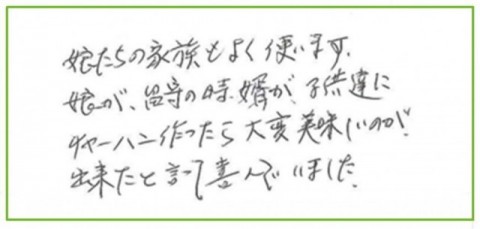 娘たちの家族もよく使います。
娘が、留守の時、婿が、子供達に
チャーハン作ったら大変美味しいのが、
出来たと言って喜んでいました。